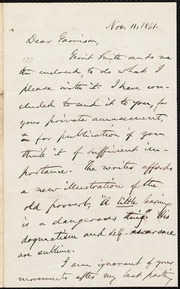 Nov. 11, 1861.
Dear Garrison,
Gerrit Smith sends me
the enclosed, to do what I
please with it. I have con-
cluded to send it to you, for
your private amusement,
& for publication if you
think it of sufficient im-
portance. The writer affords
a new illustration of the
old proverb, "A little learning
is a dangerous thing." His
dogmatism and self-assurance
are sublime.
I am ignorant of your
movements after my last parting